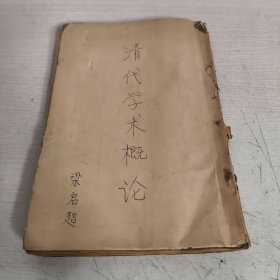 清代学术概论
梁启超